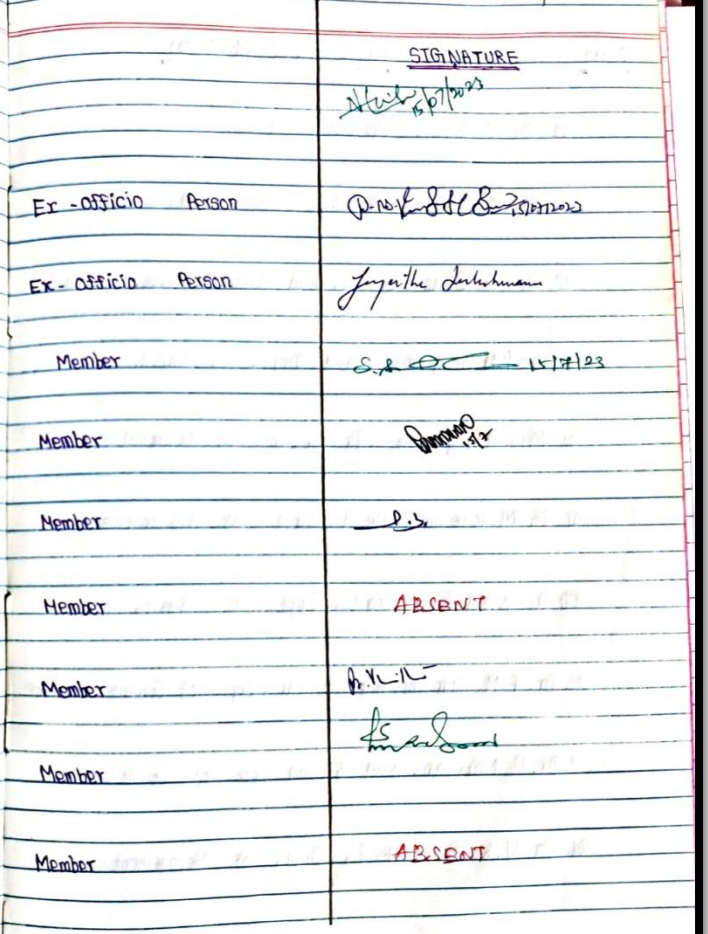 SIGNATURE
15/07/2023
Ex-officio Person 15/07/2023
Ex-officio Person
Member S.S 15/7/23
Member 15/7
Member
Member ABSENT
Member
Member
Member ABSENT